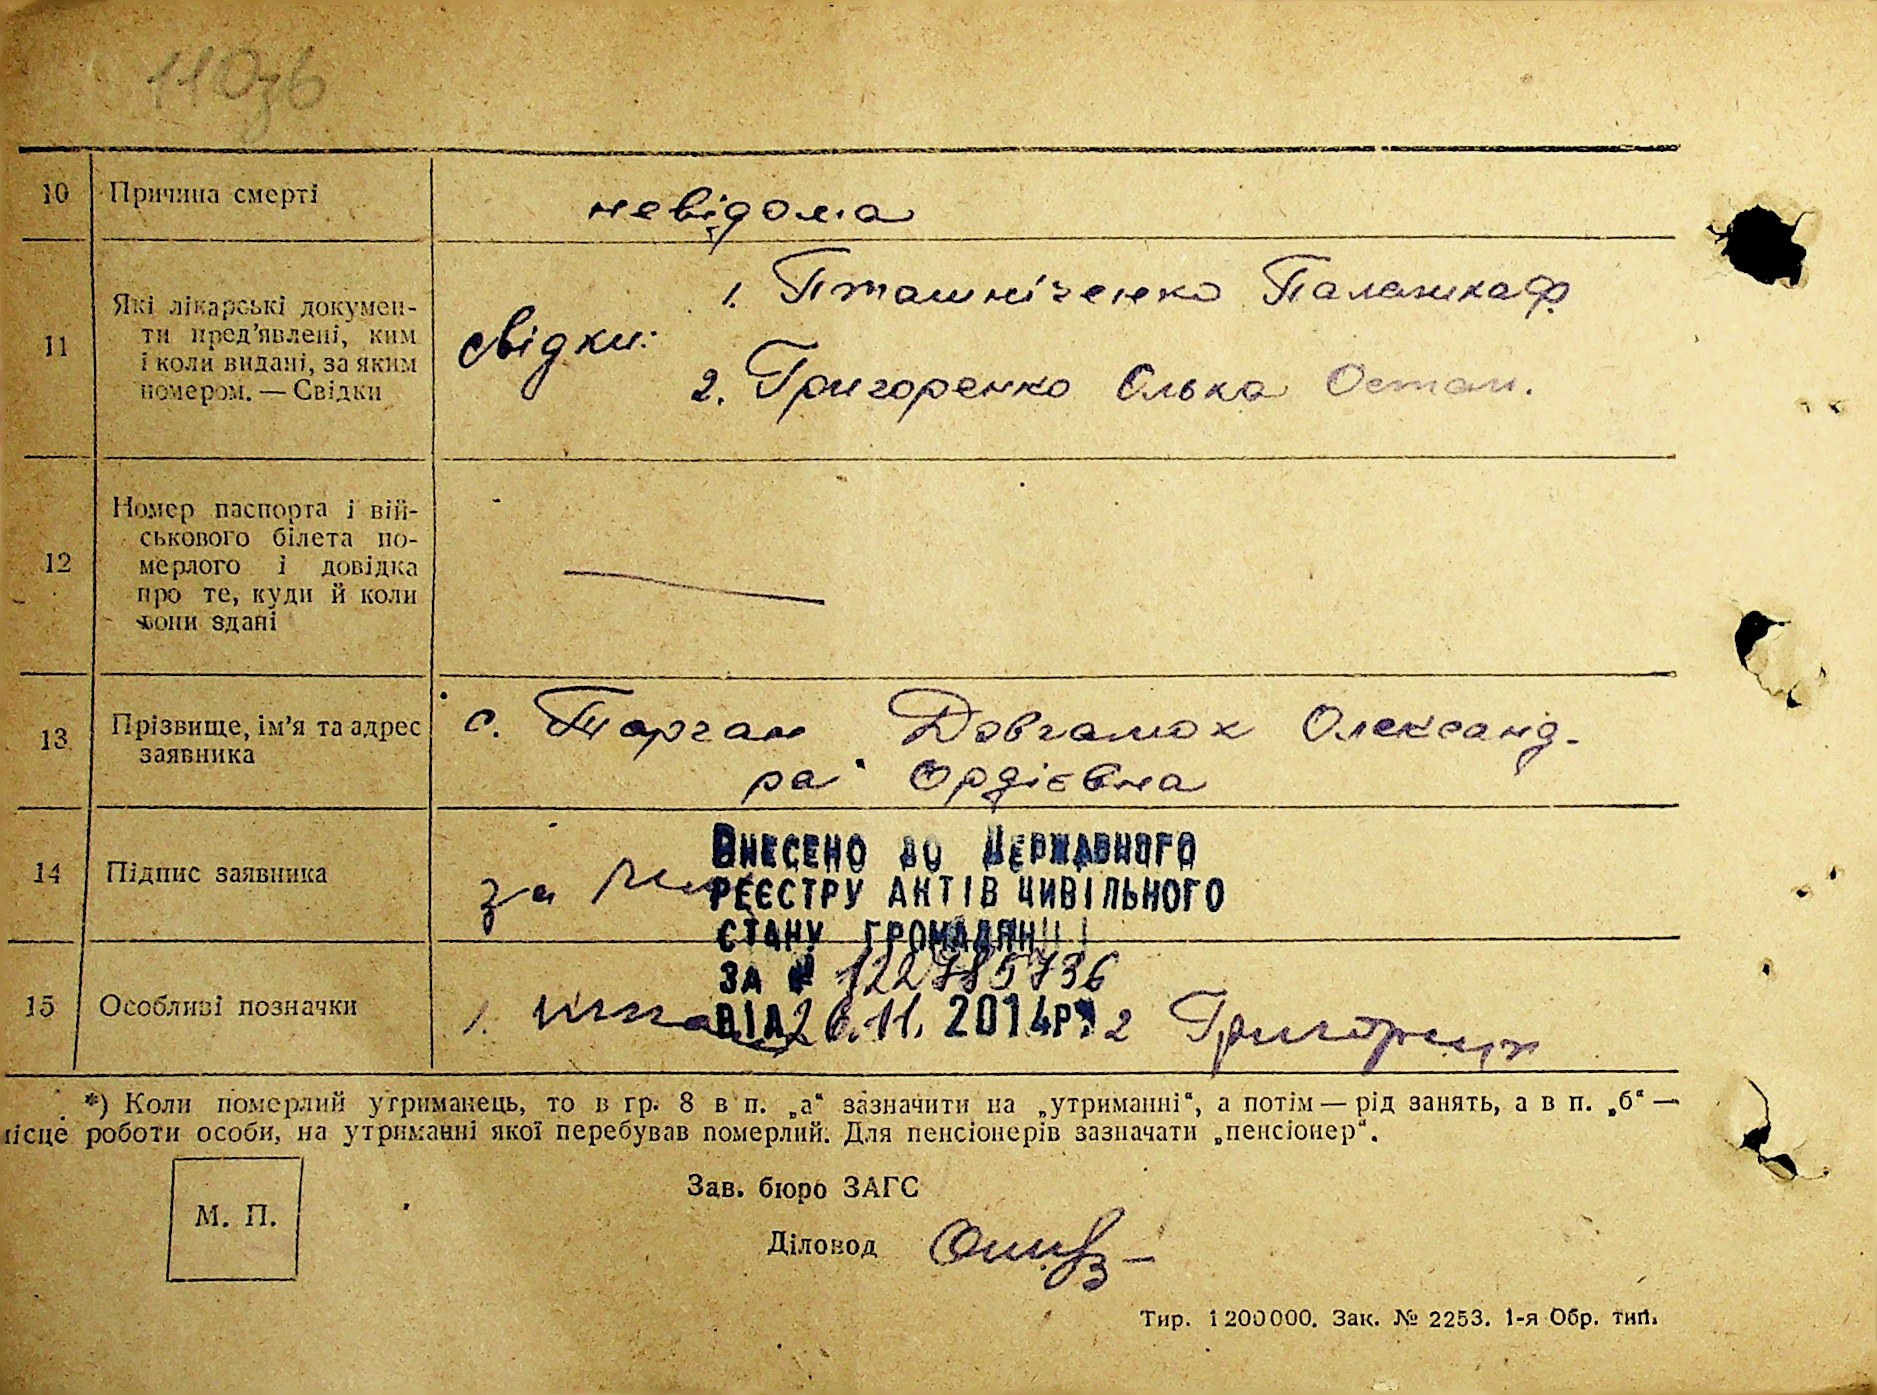 110зв
10 Причина смерті невідома
11 Які лікарські докумен-
ти пред'явлені, ким
і коли видані, за яким
номером. — Свідки
свідки:
1. Пташніченко Палажка Ф.
2. Григоренко Олька Остап.
12 Номер паспорта і вій-
ськового білета по-
мерлого і довідка
про те, куди й коли
вони здані
13 Прізвище, ім'я та адрес
заявника
с. Торган Довгалюк Олександ-
ра Ордієвна
14 Підпис заявника
за
Внесено до Державного
реєстру актів цивільного
стану громадян
за № 122785736
від 26.11.2014р.
15 Особливі позначки
1. 2 Григоренк
*) Коли померлий утриманець, то в гр. 8 в п. „а“ зазначити на „утриманні“, а потім — рід занять, а в п. „б“ —
місце роботи особи, на утриманні якої перебував померлий. Для пенсіонерів зазначати „пенсіонер“.
М. П.
Зав. бюро ЗАГС
Діловод
Тир. 1200000. Зак. № 2253. 1-я Обр. тип.